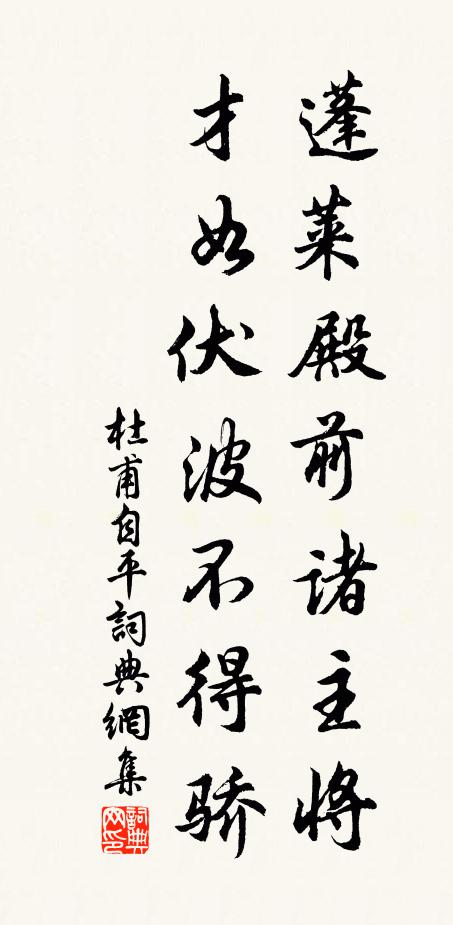 蓬莱殿前诸主将
才如伏波不得骄
杜甫自平詞典網集
詞典網印